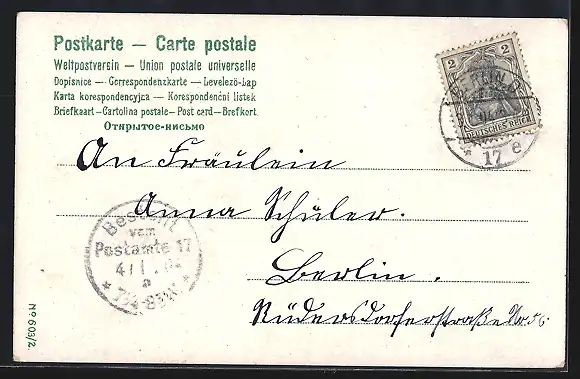 Postkarte — Carte postale
Weltpostverein — Union postale universelle
Dopisnice — Correspondenzkarte — Levelező-Lap
Karta korespondencyjna — Korespondenční listek
Briefkaart — Cartolina postale — Post card — Brefkort
Открытое-письмо
2 2
BERLIN
DEUTSCHES REICH
* 17 e
An Fräulein
Anna Schüler.
Bestellt
vom
Postamte 17
4/1. 04
a
Berlin.
Rüdersdorferstraße No. 56
No 603/2